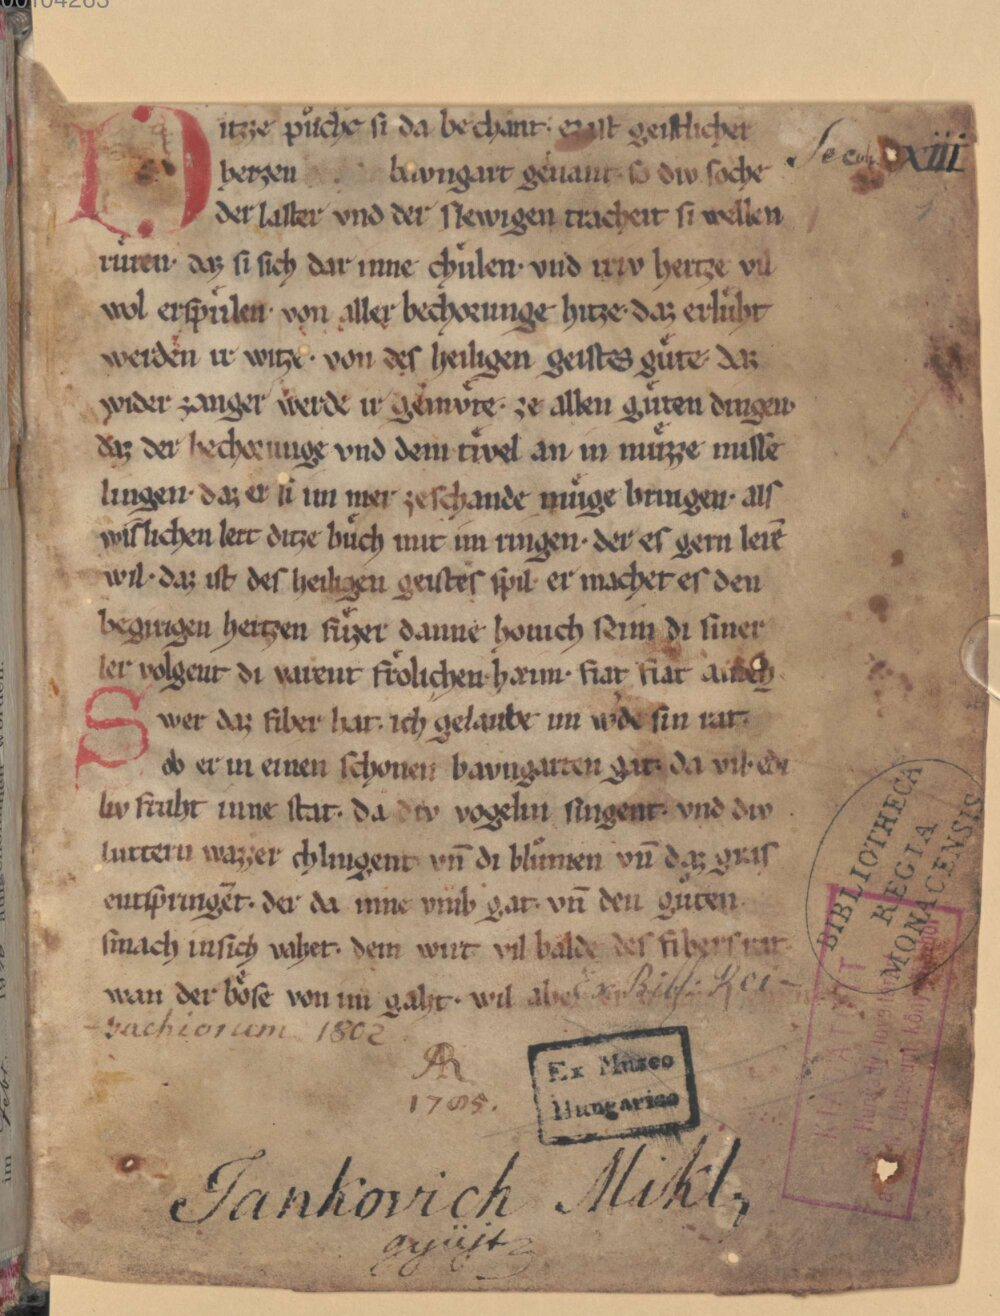 00104263
Ditze půche si da bechant. ez ist geistlicher
hertzen bavngart genant. so div soche
der laster vnd der slewigen tracheit si wellen
růren. daz si sich dar inne chůlen. vnd iriv hertze vil
wol erspůlen. von aller bechorunge hitze. daz erlůht
werden ir witze. von des heiligen geistes gůte. daz
wider zanger werde ir gemvͤte. ze allen gůten dingen.
daz der bechorunge vnd dem tivel an in můzze misse
lingen. daz er si im mer zeschande můge bringen. als
wislichen lert ditze bůch mit im ringen. der es gern lesē
wil. daz ist des heiligen geistes spil. er machet es den
begirigen hertzen sůzer danne honich seim di siner
ler volgent di varent frôlichen. haim. fiat fiat amen
Swer daz fiber hat. ich gelaube im wͦde sin rat.
ob er in einen schonen bavngarten gat. da vil edi
liv fruht inne stat. da div vogelin singent. vnd div
luttern wazzer chlingent. vn̄ di blůmen vn̄ daz gras
entspringēt. der da inne vmb gat. vn̄ den gůten
smach insich vahet. dem wirt vil balde des fibers rat.
wan der bôse von im gaht. wil aber
Secul. XIII
Ex Bibl. Rei-
sachiorum 1802
AR
1785.
Ex Museo
Hungarico
BIBLIOTHECA
REGIA
MONACENSIS
Jankovich Mikl.
gyüjt